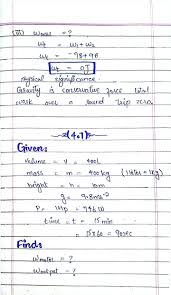 (iii) Wnet = ?
Wt = W1 + W2
Wt = -98 + 98
Wt = 0J
physical significance.
Gravity is conservative force total
work over a round trip zero.
(4.7)
Given:
volume = V = 400L
mass = m = 400kg (1 liter = 1kg)
height = h = 10m
g = 9.8ms-2
P = 1hp = 746W
time = t = 15min
= 15x60 = 900sec
Finds
= ?
Woutput = ?